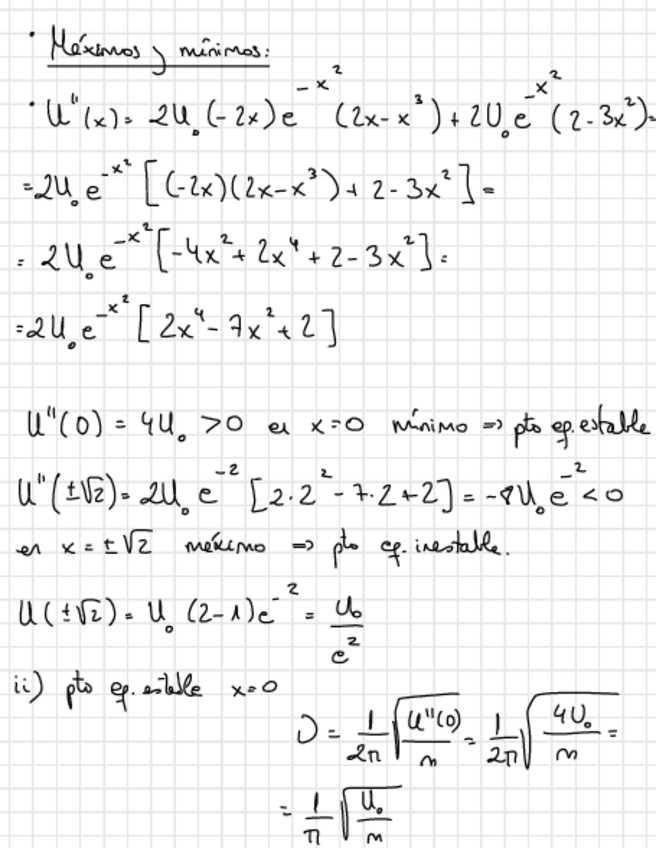 · Máximos y mínimos:
· U''(x) = 2U₀(-2x)e^{-x²}(2x-x³)+2U₀e^{-x²}(2-3x²)=
=2U₀e^{-x²}[(-2x)(2x-x³)+2-3x²]=
= 2U₀e^{-x²}[-4x²+2x⁴+2-3x²]=
=2U₀e^{-x²}[2x⁴-7x²+2]
U''(0) = 4U₀ >0 en x=0 mínimo => pto eq. estable
U''(±√2) = 2U₀e^{-2}[2·2²-7·2+2] = -8U₀e^{-2}<0
en x = ±√2 máximo => pto eq. inestable.
U(±√2) = U₀(2-1)e^{-2} = U₀/e²
ii) pto eq. estable x=0
ν = 1/2π √(U''(0)/m) = 1/2π √(4U₀/m) =
= 1/π √(U₀/m)